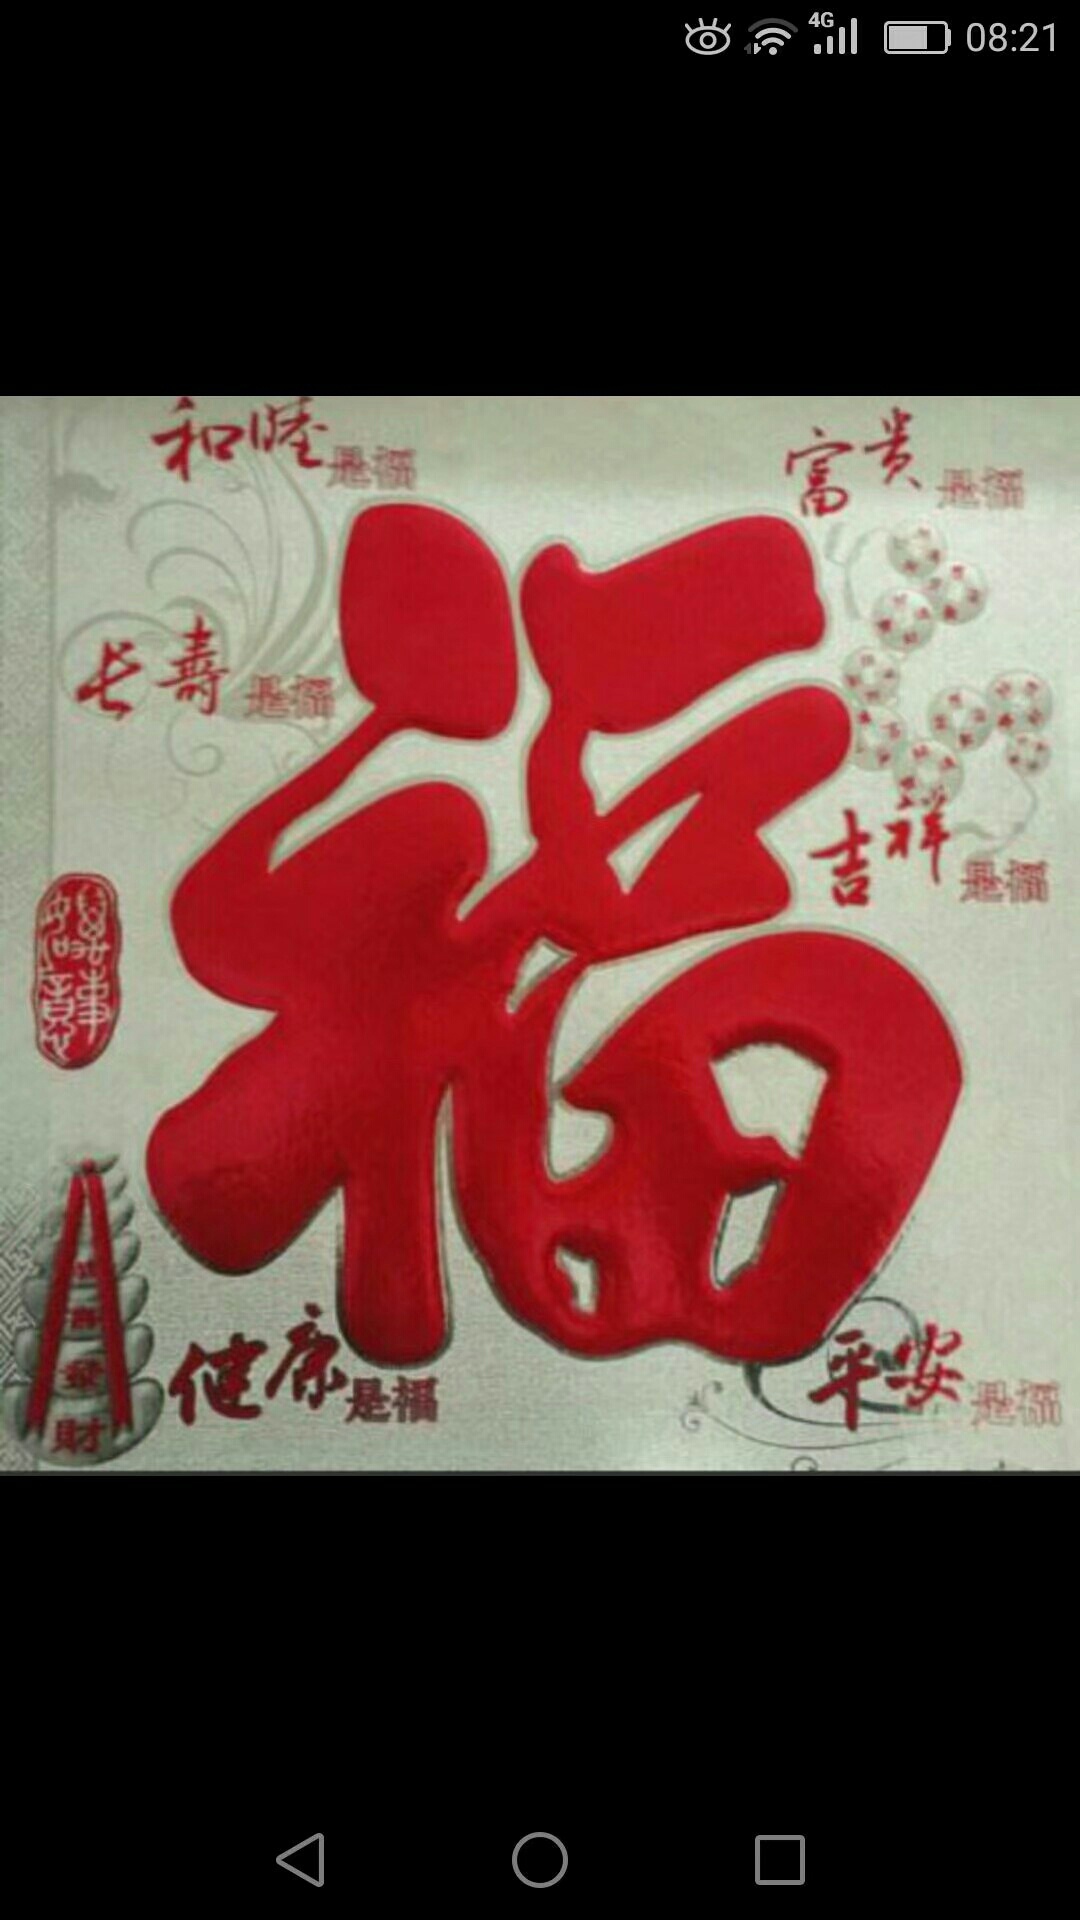 4G 08:21
和睦是福
富贵是福
福
长寿是福
吉祥是福
健康是福
平安是福
財